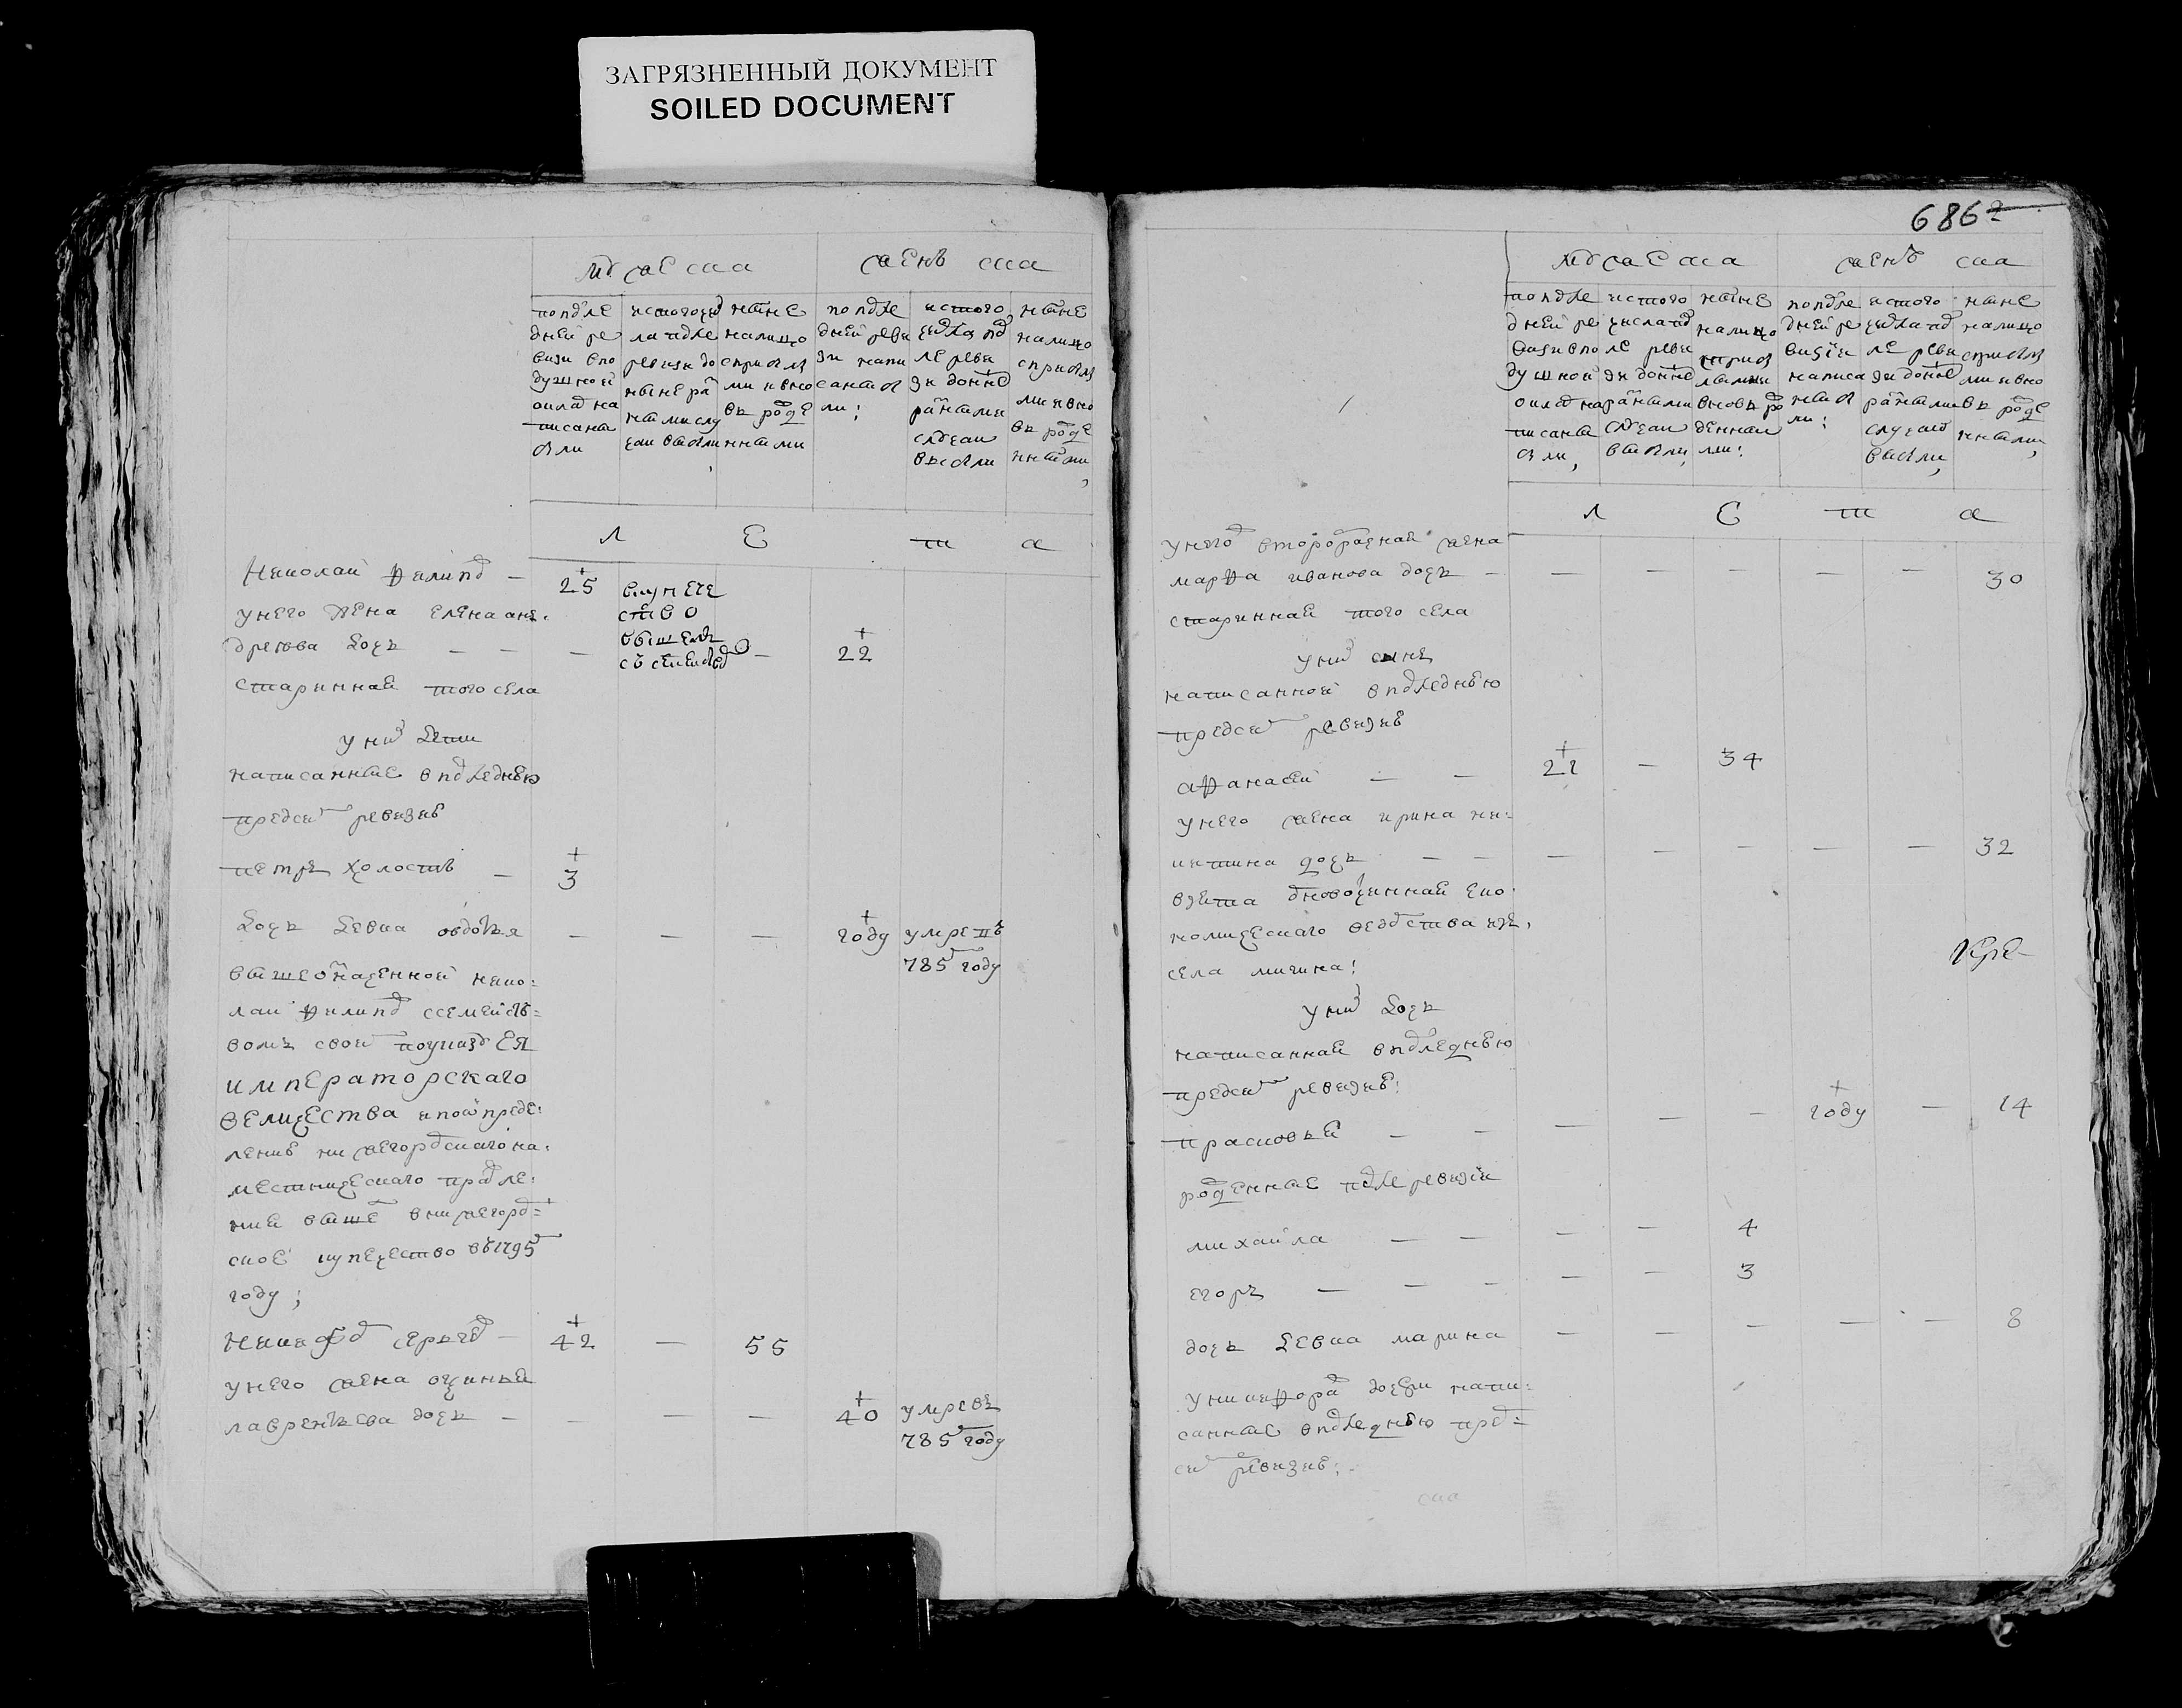 ЗАГРЯЗНЕННЫЙ ДОКУМЕНТ
SOILED DOCUMENT
мужеска
женска
после
дней ре
визи впо
душной
оклад на
писаны
были
ис того чи
ла после
ревизи до
ныне ра
ными слу
чаи выбыли
ныне
налицо
с прибы
ми и вно
вь роже
нными
после
дней реви
зи напи
саны бы
ли;
ис того
числа по
ле реви
зи до ныне
разными
случаи
выбыли
ныне
налицо
с прибы
ми и вно
вь роже
нными,
л е т а
Николай Филипов — 25
купече
ство
у него жена елена анъ.
дреева дочь — — — — 22
старинная того села
у них дети
написанные в последнею
пред сим ревизие
петръ холостъ — 3
дочь девка овдотья — — — году умре въ
785 году
вышеозначенной нико:
лай филипов ссемейст=
вомъ своим по указу ЕЯ
императорскаго
величества и по опреде:
ление нижегородскаго на:
местническаго правле:
ния выше в нижегород=
ское купечество въ 1795
году;
Никифор Сергеев — 42 — 55
у него жена
лаврентьева дочь — — — — 40 умре въ
785 году
686
мужеска
женска
после
дней ре
визи впо
душной
оклад на
писаны
были,
ис того
числа по
ле реви
зи до ныне
разными
случаи
выбыли,
ныне
налицо
с прибы
лыми
вновь ро
жденны
ми:
после
дней ре
визии
написа
ны бы
ли:
ис того
числа по
ле реви
зи до ныне
разными
случаи
выбыли,
ныне
налицо
с прибы
ми и вно
вь роже
нными,
л е т а
у него второбрачная жена
марфа иванова дочь — — — — — — 30
старинная того села
у них сынъ
написанной в последнею
пред сим ревизие
афанасей — — 21 — 34
у него жена ирина ни:
китина дочь — — — — — — — 32
взята дворочинная еко
номическаго ведомства изъ,
села мигина:
у них дочь
написанная в последнею
пред сим ревизие:
прасковья — — — — — году — 14
рожденные после ревизии
михайла — — — — 4
егоръ — — — — — 3
дочь девка марина — — — — — 8
у никифора дочери напи:
санные в последнею пред=
сим ревизие: